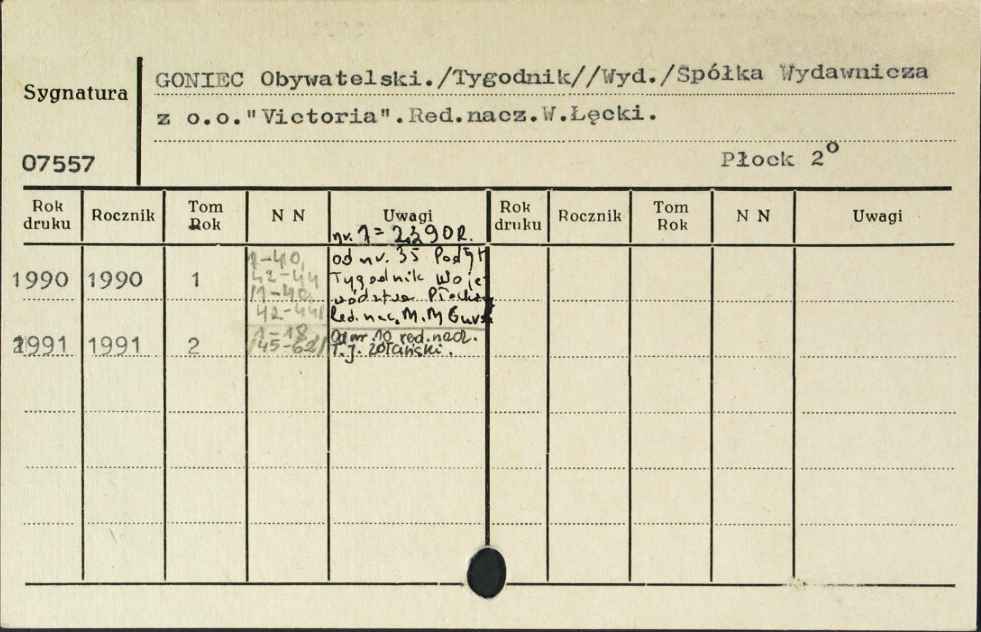 Sygnatura
07557
GONIEC Obywatelski./Tygodnik//Wyd./Spółka Wydawnicza
z o.o."Victoria".Red.nacz.W.Łęcki.
Płock 2°
Rok druku Rocznik Tom Rok N N Uwagi Rok druku Rocznik Tom Rok N N Uwagi
nr. 1 =
1990 1990 1 1-40, od nr. 35 Podyt
42-44 Tygodnik Woje-
/1-40, wództwa
42-44/ Red. nac. M.M
1991 1991 2 1-18 Od nr. 10 red. nacz.
/45-62/ T. J.